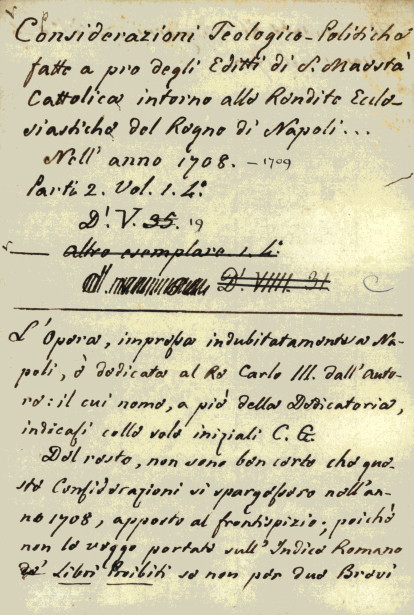 Considerazioni Teologico-Politiche
fatte a pro degli Editti di S. Maestà
Cattolica intorno alle Rendite Eccle-
siastiche del Regno di Napoli...
Nell' anno 1708. - 1709
Parti 2. Vol. 1. 4°
D'. V. 35. 19
altro esemplare 1. 4°
D'. VIIII. 31
L'Opera, impressa indubitatamente a Na-
poli, è dedicata al Re Carlo III. dall'Auto-
re: il cui nome, a piè della Dedicatoria,
indicasi colle sole iniziali C. G.
Del resto, non sono ben certo che que-
ste Considerazioni si spargessero nell'an-
no 1708, apposto al frontispizio; poichè
non le veggo portate sull'Indice Romano
de' Libri Proibiti se non per due Brevi